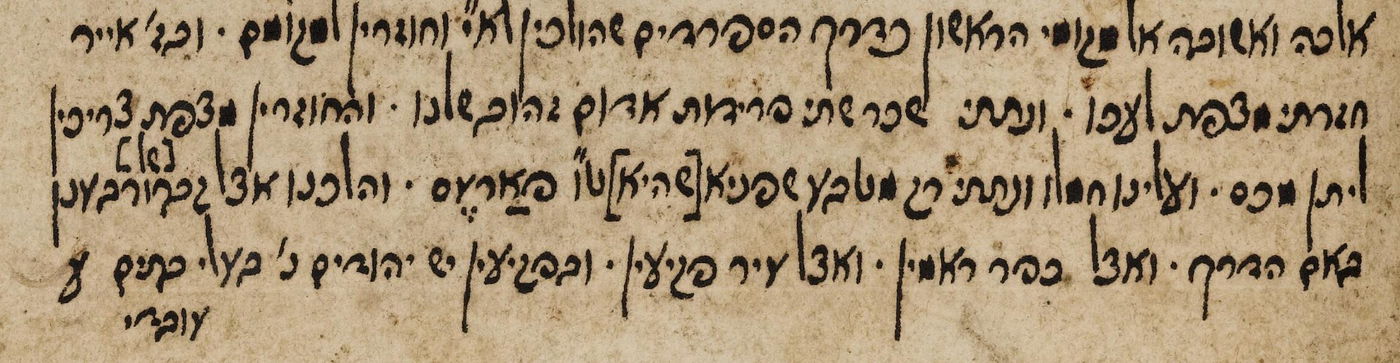 אלכה ואשובה אל מקומי הראשון כדרך הספרדים שהולכין לא״י וחוזרין למקומם · ובג׳ אייר
חזרתי מצפת לעכו · ונתתי שכר שתי פרידות אדום זהוב שלנו · והחוזרין מצפת צריכין
ליתן מכס · ועלינו חמלו ונתתי רק מטבע שפניא [שהיא] ט״ו פארעס · והלכנו אצל קברו רבענן
[של]
באם הדרך · ואצל כפר ראמין · ואצל עיר פגיעין · ובפגיעין יש יהודים נ׳ בעלי בתים ע
עובדי